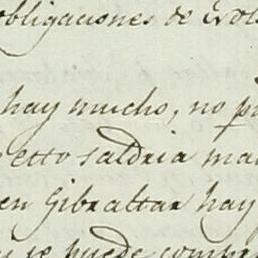 obligaciones de
hay mucho, no
etto saldria
en Gibraltar hay
se puede